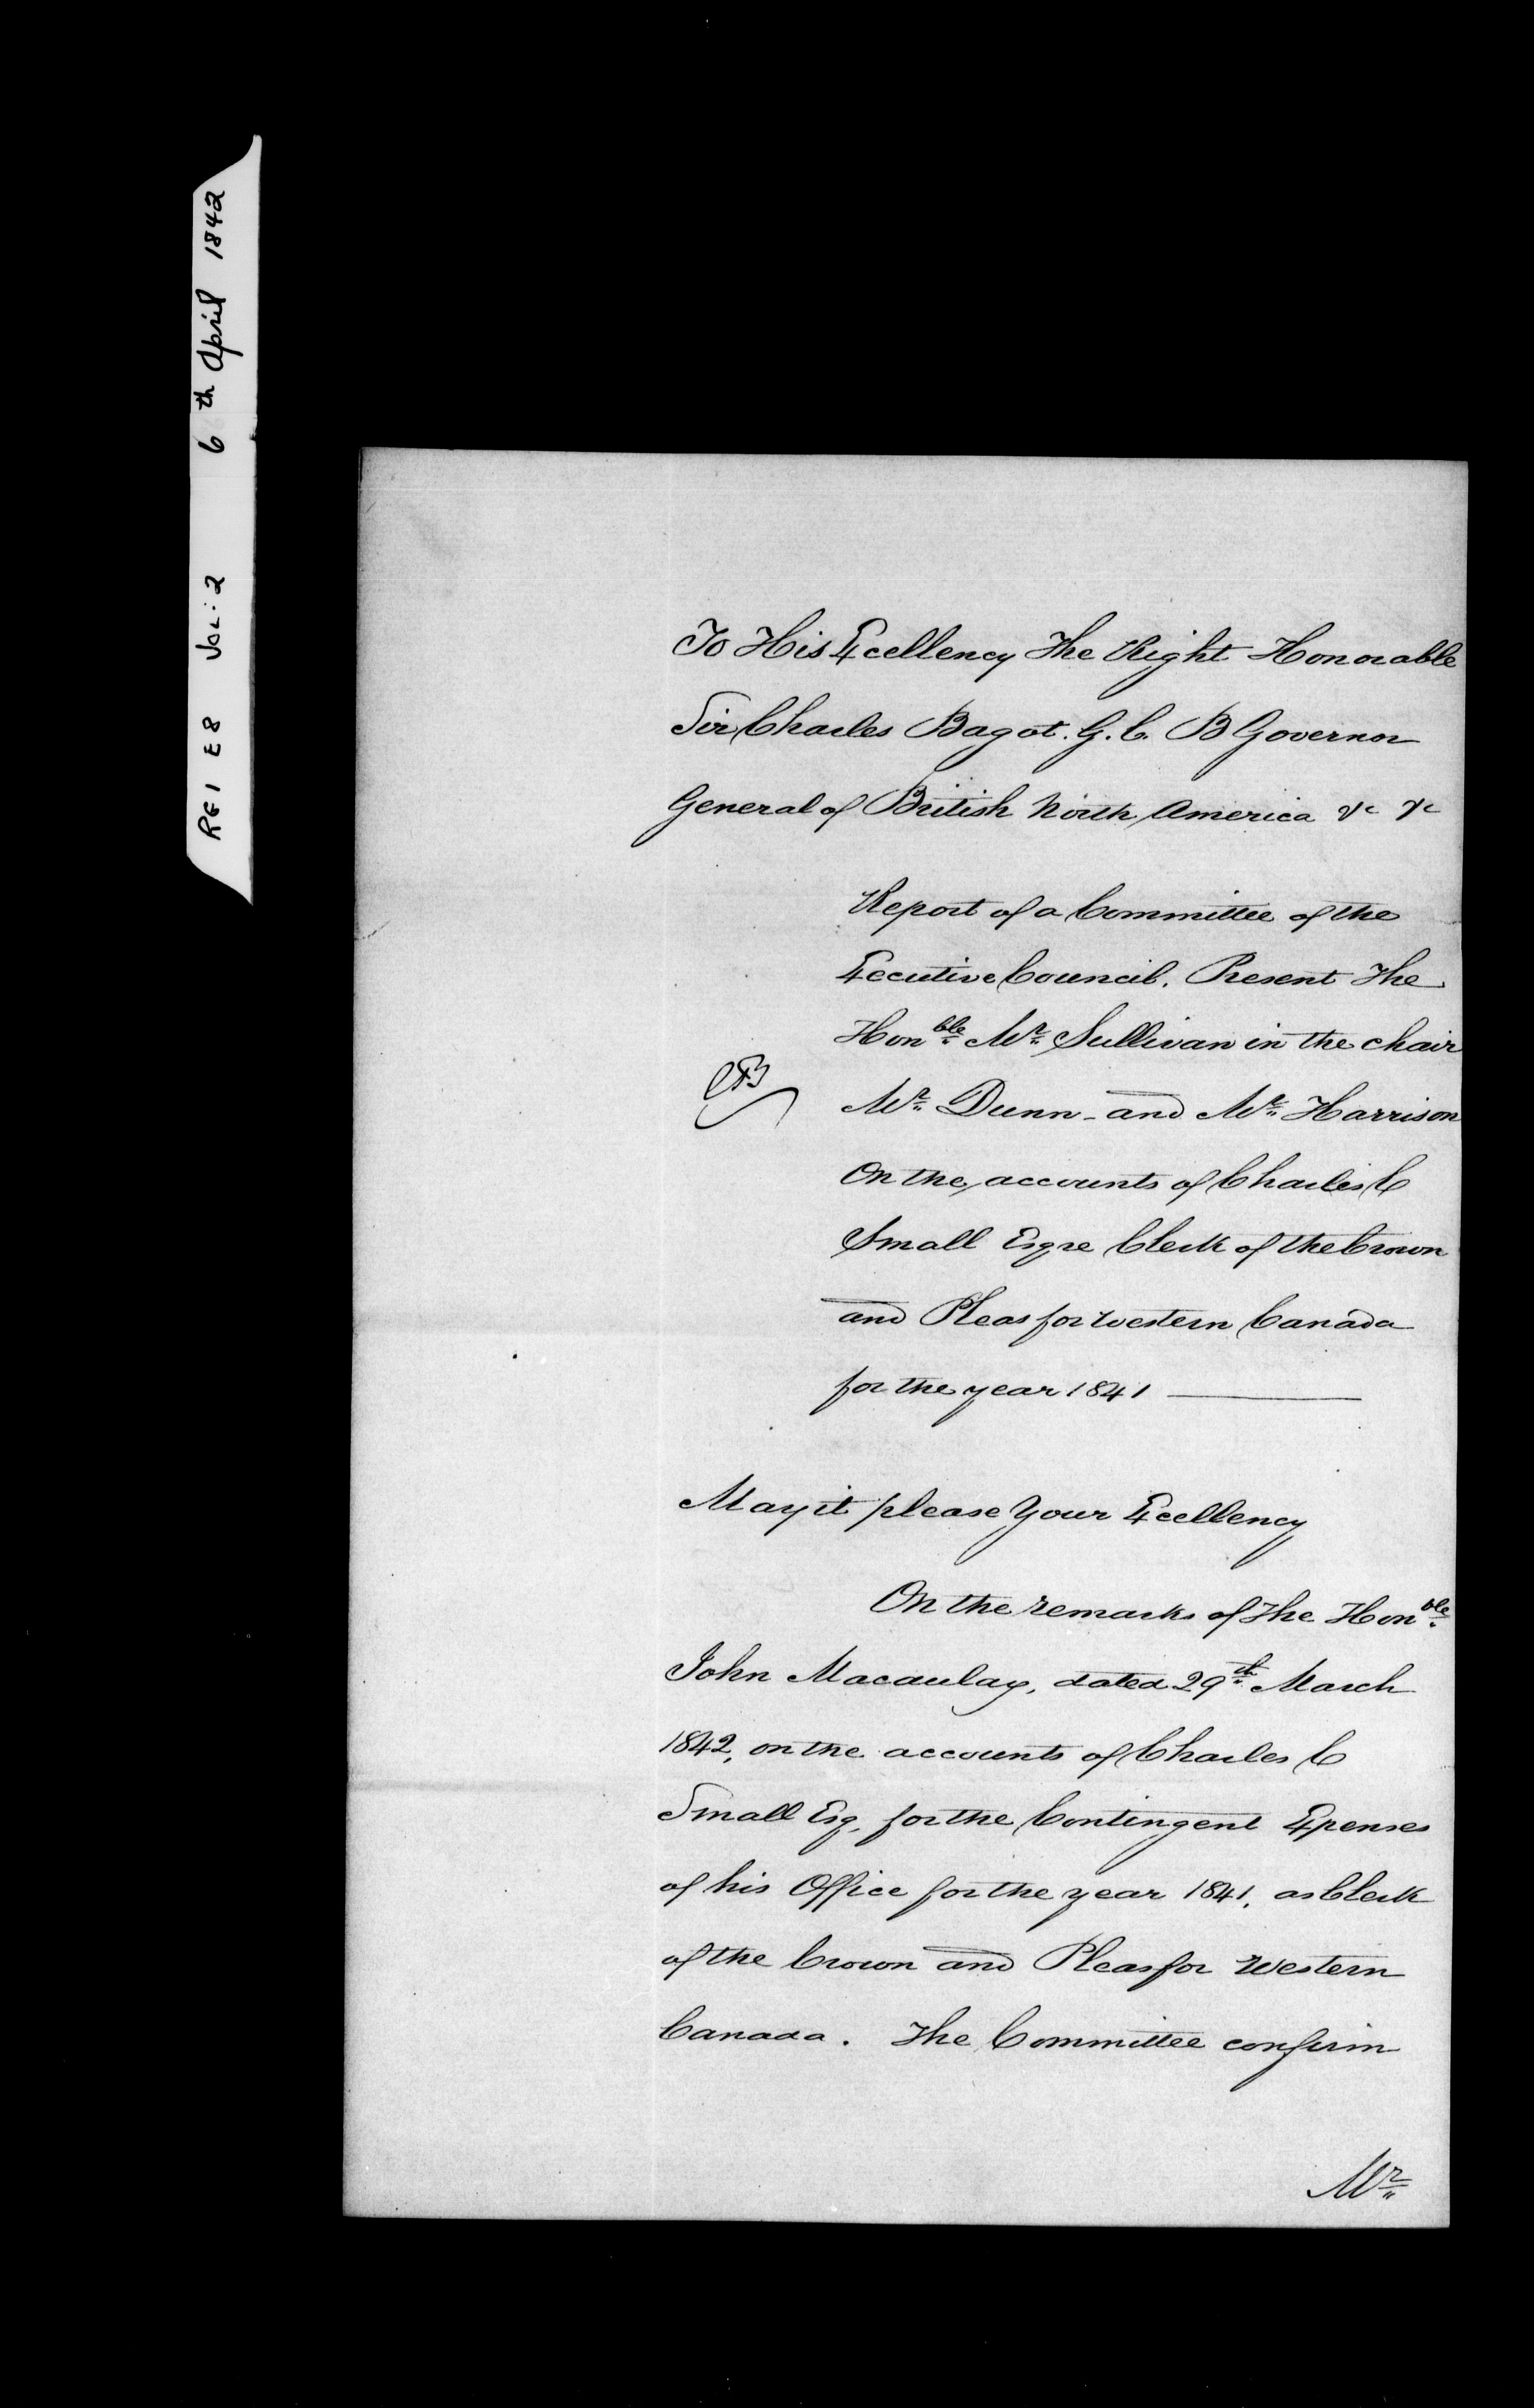 RG1 E8 VOL: 2 6th April 1842
To His Excellency The Right Honorable
Sir Charles Bagot. G. C. B Governor
General of British North America &c &c
Report of a Committee of the
Executive Council. Present The
Honble Mr Sullivan in the chair
CB
Mr Dunn - and Mr Harrison
On the accounts of Charles C
Small Esqre Clerk of the Crown
and Pleas for Western Canada
for the year 1841
May it please Your Excellency
On the remarks of The Honble
John Macaulay, dated 29th March
1842, on the accounts of Charles C
Small Esq, for the Contingent Expenses
of his Office for the year 1841, as Clerk
of the Crown and Pleas for Western
Canada. The Committee confirm
Mr